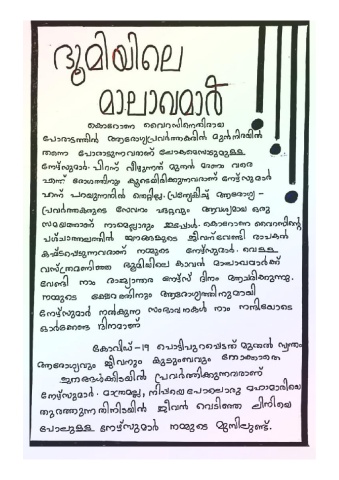 ഭൂമിയിലെ
മാലാഖമാർ
കൊറോണ വൈറസിനെതിരായ
പോരാട്ടത്തിൽ ആരോഗ്യപ്രവർത്തകരിൽ മുൻനിരയിൽ
തന്നെ പോരാടുന്നവരാണ് ലോകമെമ്പാടുമുള്ള
നേഴ്സുമാർ. പിറന്ന് വീഴുന്നത് മുതൽ മരണം വരെ
എന്ന് രോഗത്തിനും കൂടെയിരിക്കുന്നവരാണ് നേഴ്സുമാർ
എന്ന് പറയുന്നതിൽ തെറ്റില്ല. പ്രത്യേകിച്ച് ആരോഗ്യ -
പ്രവർത്തകരുടെ സേവനം ഏറ്റവും ആവശ്യമായ ഒരു
സമയത്താണ് നാമെല്ലാവരും ഇപ്പോൾ. കൊറോണ വൈറസിന്റെ
പശ്ചാത്തലത്തിൽ ജനങ്ങളുടെ ജീവന് വേണ്ടി രാപകൽ
കഷ്ടപ്പെടുന്നവരാണ് നമ്മുടെ നേഴ്സുമാർ. വെള്ള
വസ്ത്രമണിഞ്ഞ ഭൂമിയിലെ കാവൽ മാലാഖമാർക്ക്
വേണ്ടി നാം രാജ്യാന്തര നേഴ്സ് ദിനം ആചരിക്കുന്നു.
നമ്മുടെ ക്ഷേമത്തിനും ആരോഗ്യത്തിനുമായി
നേഴ്സുമാർ നൽകുന്ന സംഭാവനകൾ നാം നന്ദിയോടെ
ഓർക്കേണ്ട ദിനമാണ്
കോവിഡ് - 19 പൊട്ടിപുറപ്പെട്ടത് മുതൽ സ്വന്തം
ആരോഗ്യവും ജീവനും കുടുംബവും നോക്കാതെ
ജനങ്ങൾക്കിടയിൽ പ്രവർത്തിക്കുന്നവരാണ്
നേഴ്സുമാർ. മാത്രമല്ല, നിപ്പയെപോലൊരു മഹാമാരിയെ
തുരത്തുന്നതിനിടയിൽ ജീവൻ വെടിഞ്ഞ ലിനിയെ
പോലുള്ള നേഴ്സുമാർ നമ്മുടെ മുമ്പിലുണ്ട്.